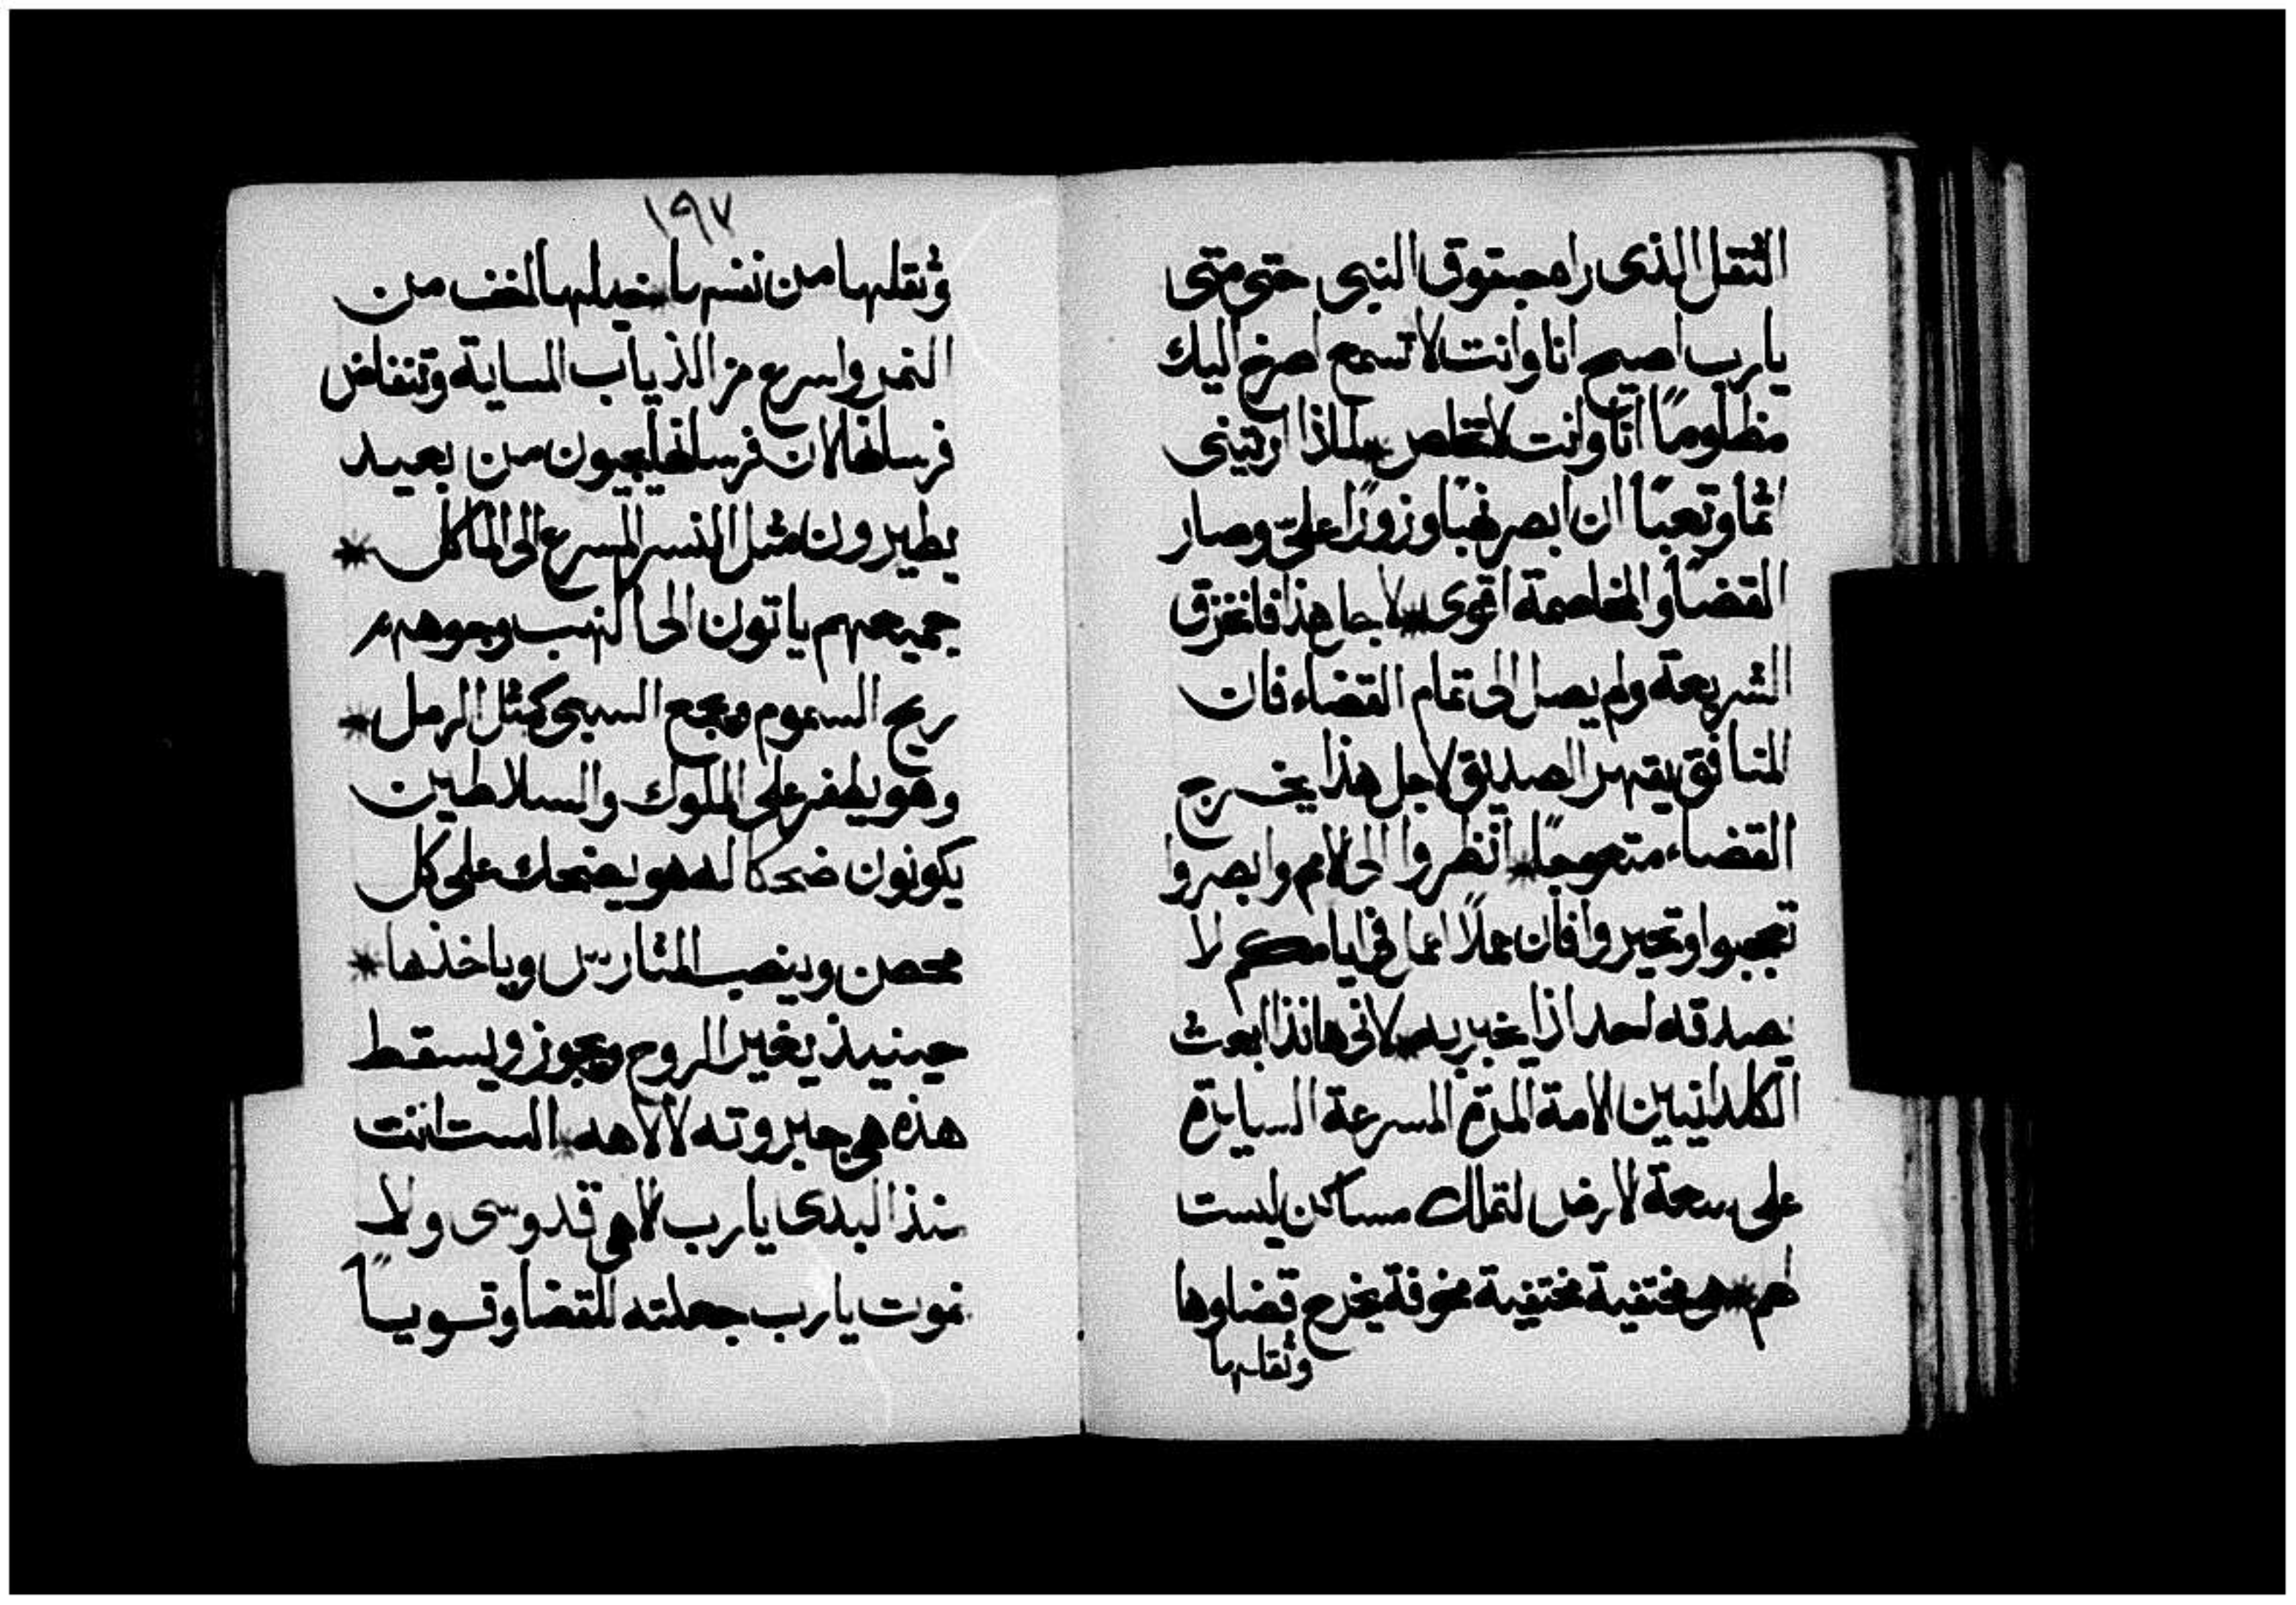 الثقل الذى راه حبقوق النبى حتى متى
يارب اصيح انا وانت لا تسمع اصرخ اليك
مظلومًا انا وانت لا تخلص * لماذا اريتينى
اثما وتعبًا ان ابصر نهبًا وزورًا علىّ وصار
القضا والمخاصمة اقوى * لاجل هذا فانخزق
الشريعة ولم يصل الى تمام القضاء فان
المنافق يقهر الصديق لاجل هذا يخرج
القضاء متعوجا * انظروا الى الامم وابصروا
تعجبوا وتحيروا فان عملاً اعمل فى ايامكم لا
يصدقه احد اذا يخبر به * لانى هانذا ابعث
الكلدانيين الامة المرّة المسرعة السايرة
على سعة الارض لتملك مساكن ليست
لهم * هى مختفية مختفية مخوفة يخرج قضاوها
وثقلها
١٩٧
وثقلها من نفسها * خيلها اخف من
النمر واسرع من الذياب المساية وتنفاض
فرسانها لان فرسانها يجيون من بعيد
يطيرون مثل النسر المسرع الى الماكل *
جميعهم ياتون الى النهب وجوههم
ريح السموم ويجمع السبى كمثل الرمل *
وهو يظفر على الملوك والسلاطين
يكونون ضحكا له هو يضحك على كل
محصن وينصب المتاريس وياخذها *
حينيذ يغير الروح ويجوز ويسقط
هذه هى جبروته لالاهه * الست انت
منذ البدى يارب الاهى قدوسى ولا
نموت يارب جعلته للقضا وقوياً